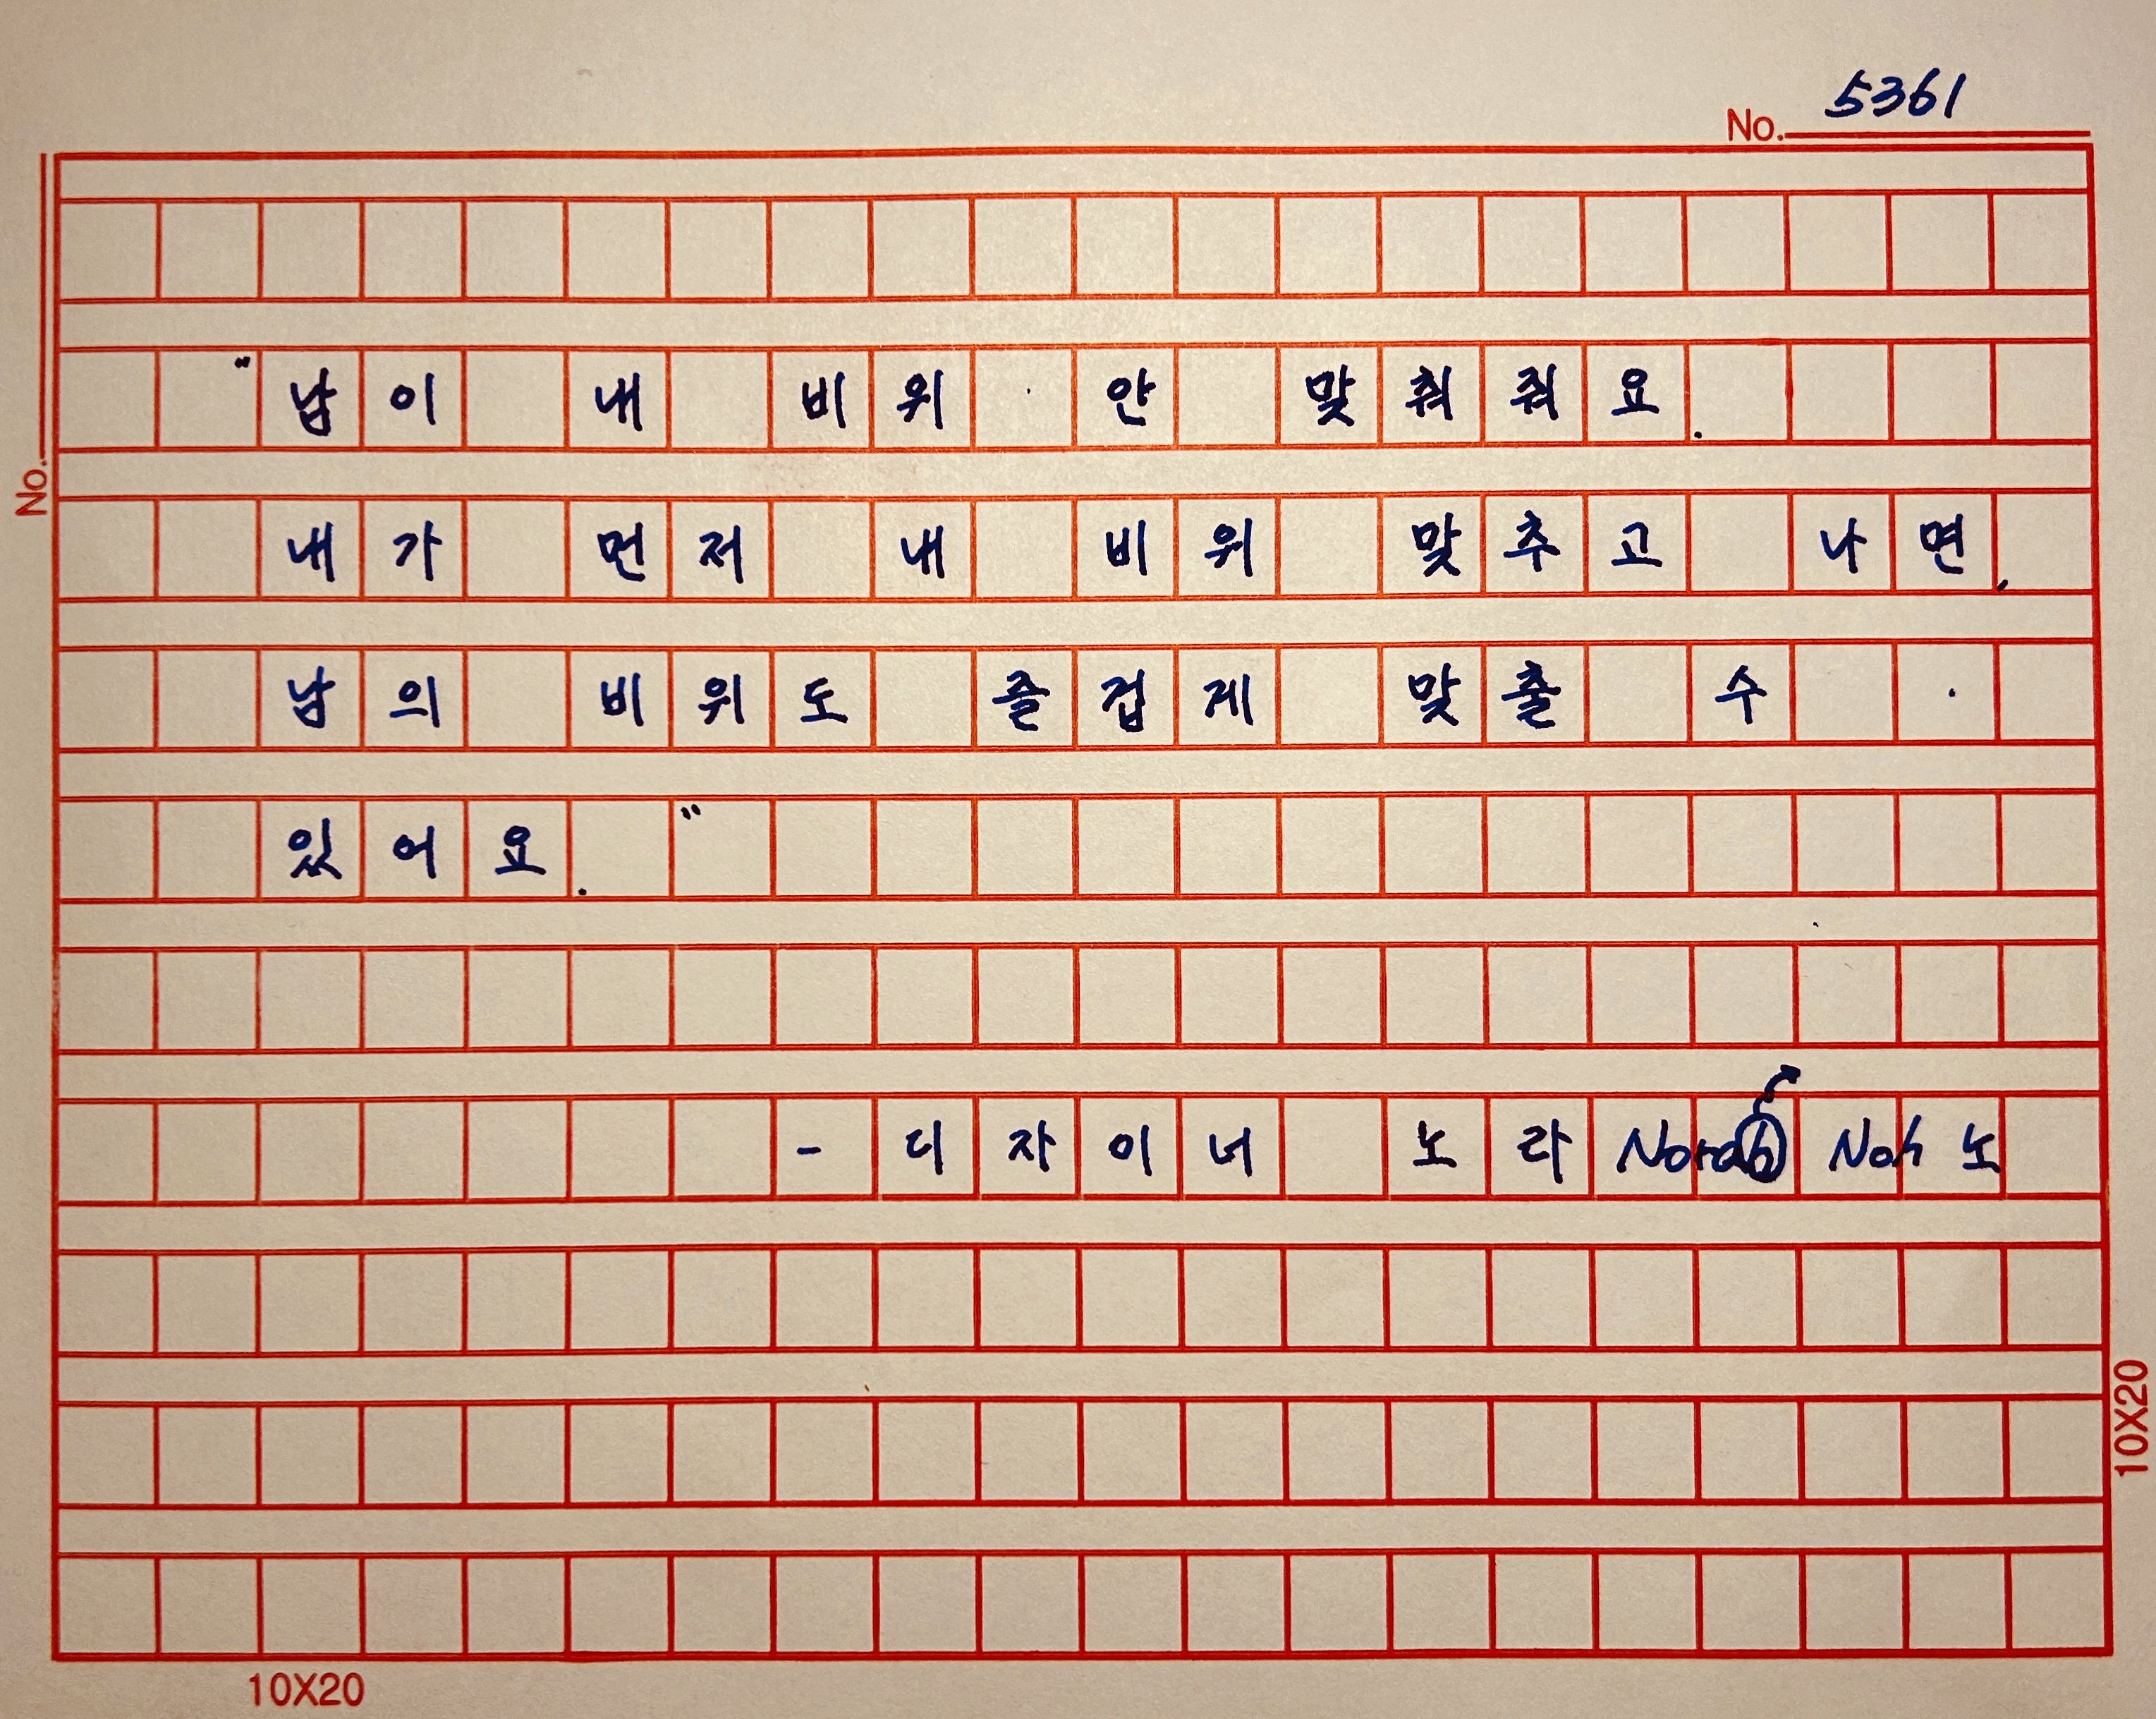 No. 5361
No.
"남이 내 비위 안 맞춰줘요.
내가 먼저 내 비위 맞추고 나면,
남의 비위도 즐겁게 맞출 수
있어요."
- 디자이너 노라 Norah Noh 노
10X20
10X20